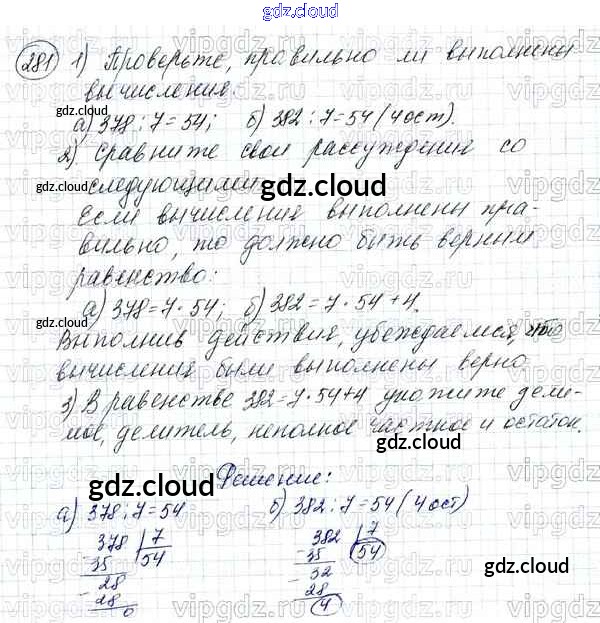 gdz.cloud
281 1) Проверьте, правильно ли выполнены
вычисления.
gdz.cloud
а) 378 : 7 = 54; б) 382 : 7 = 54 (4 ост).
2) Сравните свои рассуждения со
gdz.cloud
следующими:
gdz.cloud
Если вычисления выполнены пра-
вильно, то должно быть верным
равенство:
а) 378 = 7 · 54; б) 382 = 7 · 54 + 4.
gdz.cloud
Выполнив действия, убеждаемся, что
вычисления были выполнены верно.
3) В равенстве 382 = 7 · 54 + 4 укажите дели-
мое, делитель, неполное частное и остаток.
gdz.cloud
gdz.cloud
Решение:
gdz.cloud
а) 378 : 7 = 54 б) 382 : 7 = 54 (4 ост)
378 7 382 7
35 54 35 54
28 32
28 28
0 4
gdz.cloud
gdz.cloud